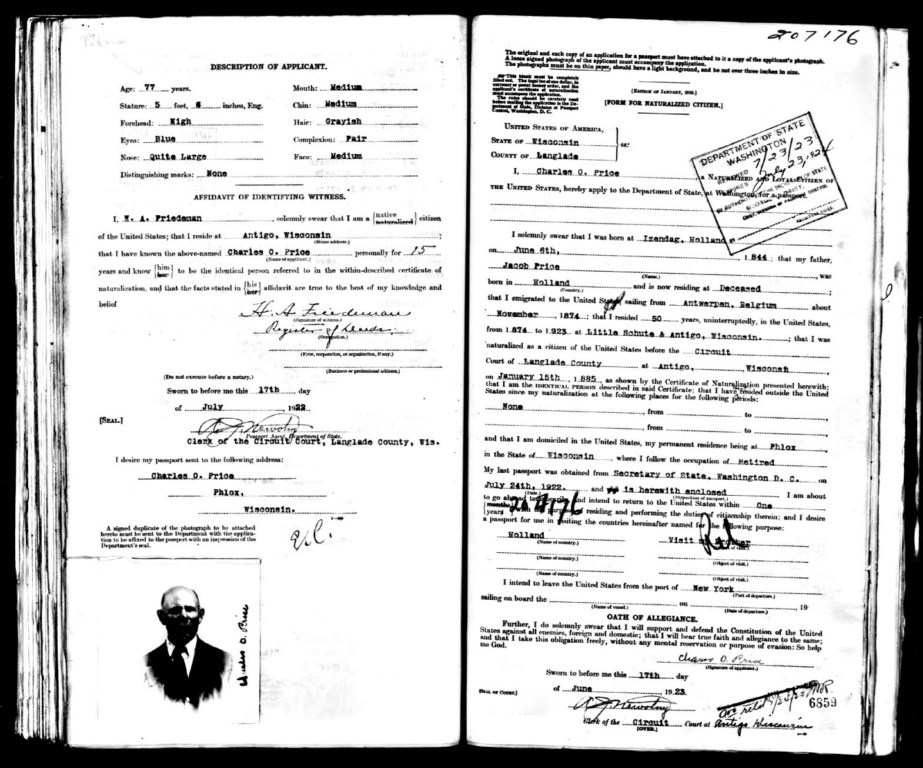 DESCRIPTION OF APPLICANT.
Age: 77 years. Mouth: Medium
Stature: 5 feet, 6 inches, Eng. Chin: Medium
Forehead: High Hair: Grayish
Eyes: Blue Complexion: Fair
Nose: Quite Large Face: Medium
Distinguishing marks: None
AFFIDAVIT OF IDENTIFYING WITNESS.
I, H. A. Friedeman, solemnly swear that I am a {native naturalized} citizen
of the United States; that I reside at Antigo, Wisconsin;
(Home address.)
that I have known the above-named Charles O. Price personally for 15
(Name of applicant.)
years and know {him her} to be the identical person referred to in the within-described certificate of
naturalization, and that the facts stated in {his her} affidavit are true to the best of my knowledge and
belief
H. A. Friedeman
(Signature of witness.)
Register of Deeds.
(Occupation.)
(Firm, corporation, or organization, if any.)
(Business or professional address.)
(Do not execute before a notary.)
Sworn to before me this 17th day
of July, 1922
[SEAL.]
Passport Agent, Department of State.
Clerk of the Circuit Court, Langlade County, Wis.
I desire my passport sent to the following address:
Charles O. Price
Phlox,
Wisconsin.
A signed duplicate of the photograph to be attached
hereto must be sent to the Department with the applica-
tion to be affixed to the passport with an impression of the
Department's seal.
207176
The original and each copy of an application for a passport must have attached to it a copy of the applicant's photograph.
A loose signed photograph of the applicant must accompany the application.
The photographs must be on thin paper, should have a light background, and be not over three inches in size.
This blank must be completely
filled out. The legal fee of one dollar, in
currency or postal money order, and the
applicant's certificate of naturalization
must accompany the application.
The rules should be carefully read
before mailing the application to the De-
partment of State, Division of Passport
Control, Washington, D. C.
[FORM FOR NATURALIZED CITIZEN.]
UNITED STATES OF AMERICA,
STATE OF Wisconsin
COUNTY OF Langlade
DEPARTMENT OF STATE
WASHINGTON
7/23/23
July 23, 1924
I, Charles O. Price, a NATURALIZED AND LOYAL CITIZEN OF
THE UNITED STATES, hereby apply to the Department of State, at Washington, for a passport.
I solemnly swear that I was born at Izendag, Holland
on June 6th, 1844; that my father,
Jacob Price, was
(Name.)
born in Holland and is now residing at Deceased
(Country.)
that I emigrated to the United States sailing from Antwerpen, Belgium about
November, 1874; that I resided 50 years, uninterruptedly, in the United States,
from 1874 to 1923 at Little Schute & Antigo, Wisconsin.; that I was
naturalized as a citizen of the United States before the Circuit
Court of Langlade County at Antigo, Wisconsin
on January 15th, 1885, as shown by the Certificate of Naturalization presented herewith;
that I am the IDENTICAL PERSON described in said Certificate; that I have resided outside the United
States since my naturalization at the following places for the following periods:
None, from to
, from to
and that I am domiciled in the United States, my permanent residence being at Phlox
in the State of Wisconsin, where I follow the occupation of Retired
My last passport was obtained from Secretary of State, Washington D. C. on
July 24th, 1922. and is herewith enclosed I am about
(Date.) (Disposition of passport.)
to go abroad temporarily and intend to return to the United States within One
{months years} with the purpose of residing and performing the duties of citizenship therein; and I desire
a passport for use in visiting the countries hereinafter named for the following purpose:
Holland Visit my Brother
(Name of country.) (Object of visit.)
(Name of country.) (Object of visit.)
(Name of country.) (Object of visit.)
I intend to leave the United States from the port of New York
(Port of departure.)
sailing on board the on 19
(Name of vessel.) (Date of departure.)
OATH OF ALLEGIANCE.
Further, I do solemnly swear that I will support and defend the Constitution of the United
States against all enemies, foreign and domestic; that I will bear true faith and allegiance to the same;
and that I take this obligation freely, without any mental reservation or purpose of evasion: So help
me God.
Chares O. Price
(Signature of applicant.)
Sworn to before me this 17th day
of June, 1923
[SEAL OF COURT.]
6859
Clerk of the Circuit Court at Antigo Wisconsin
[OVER.]